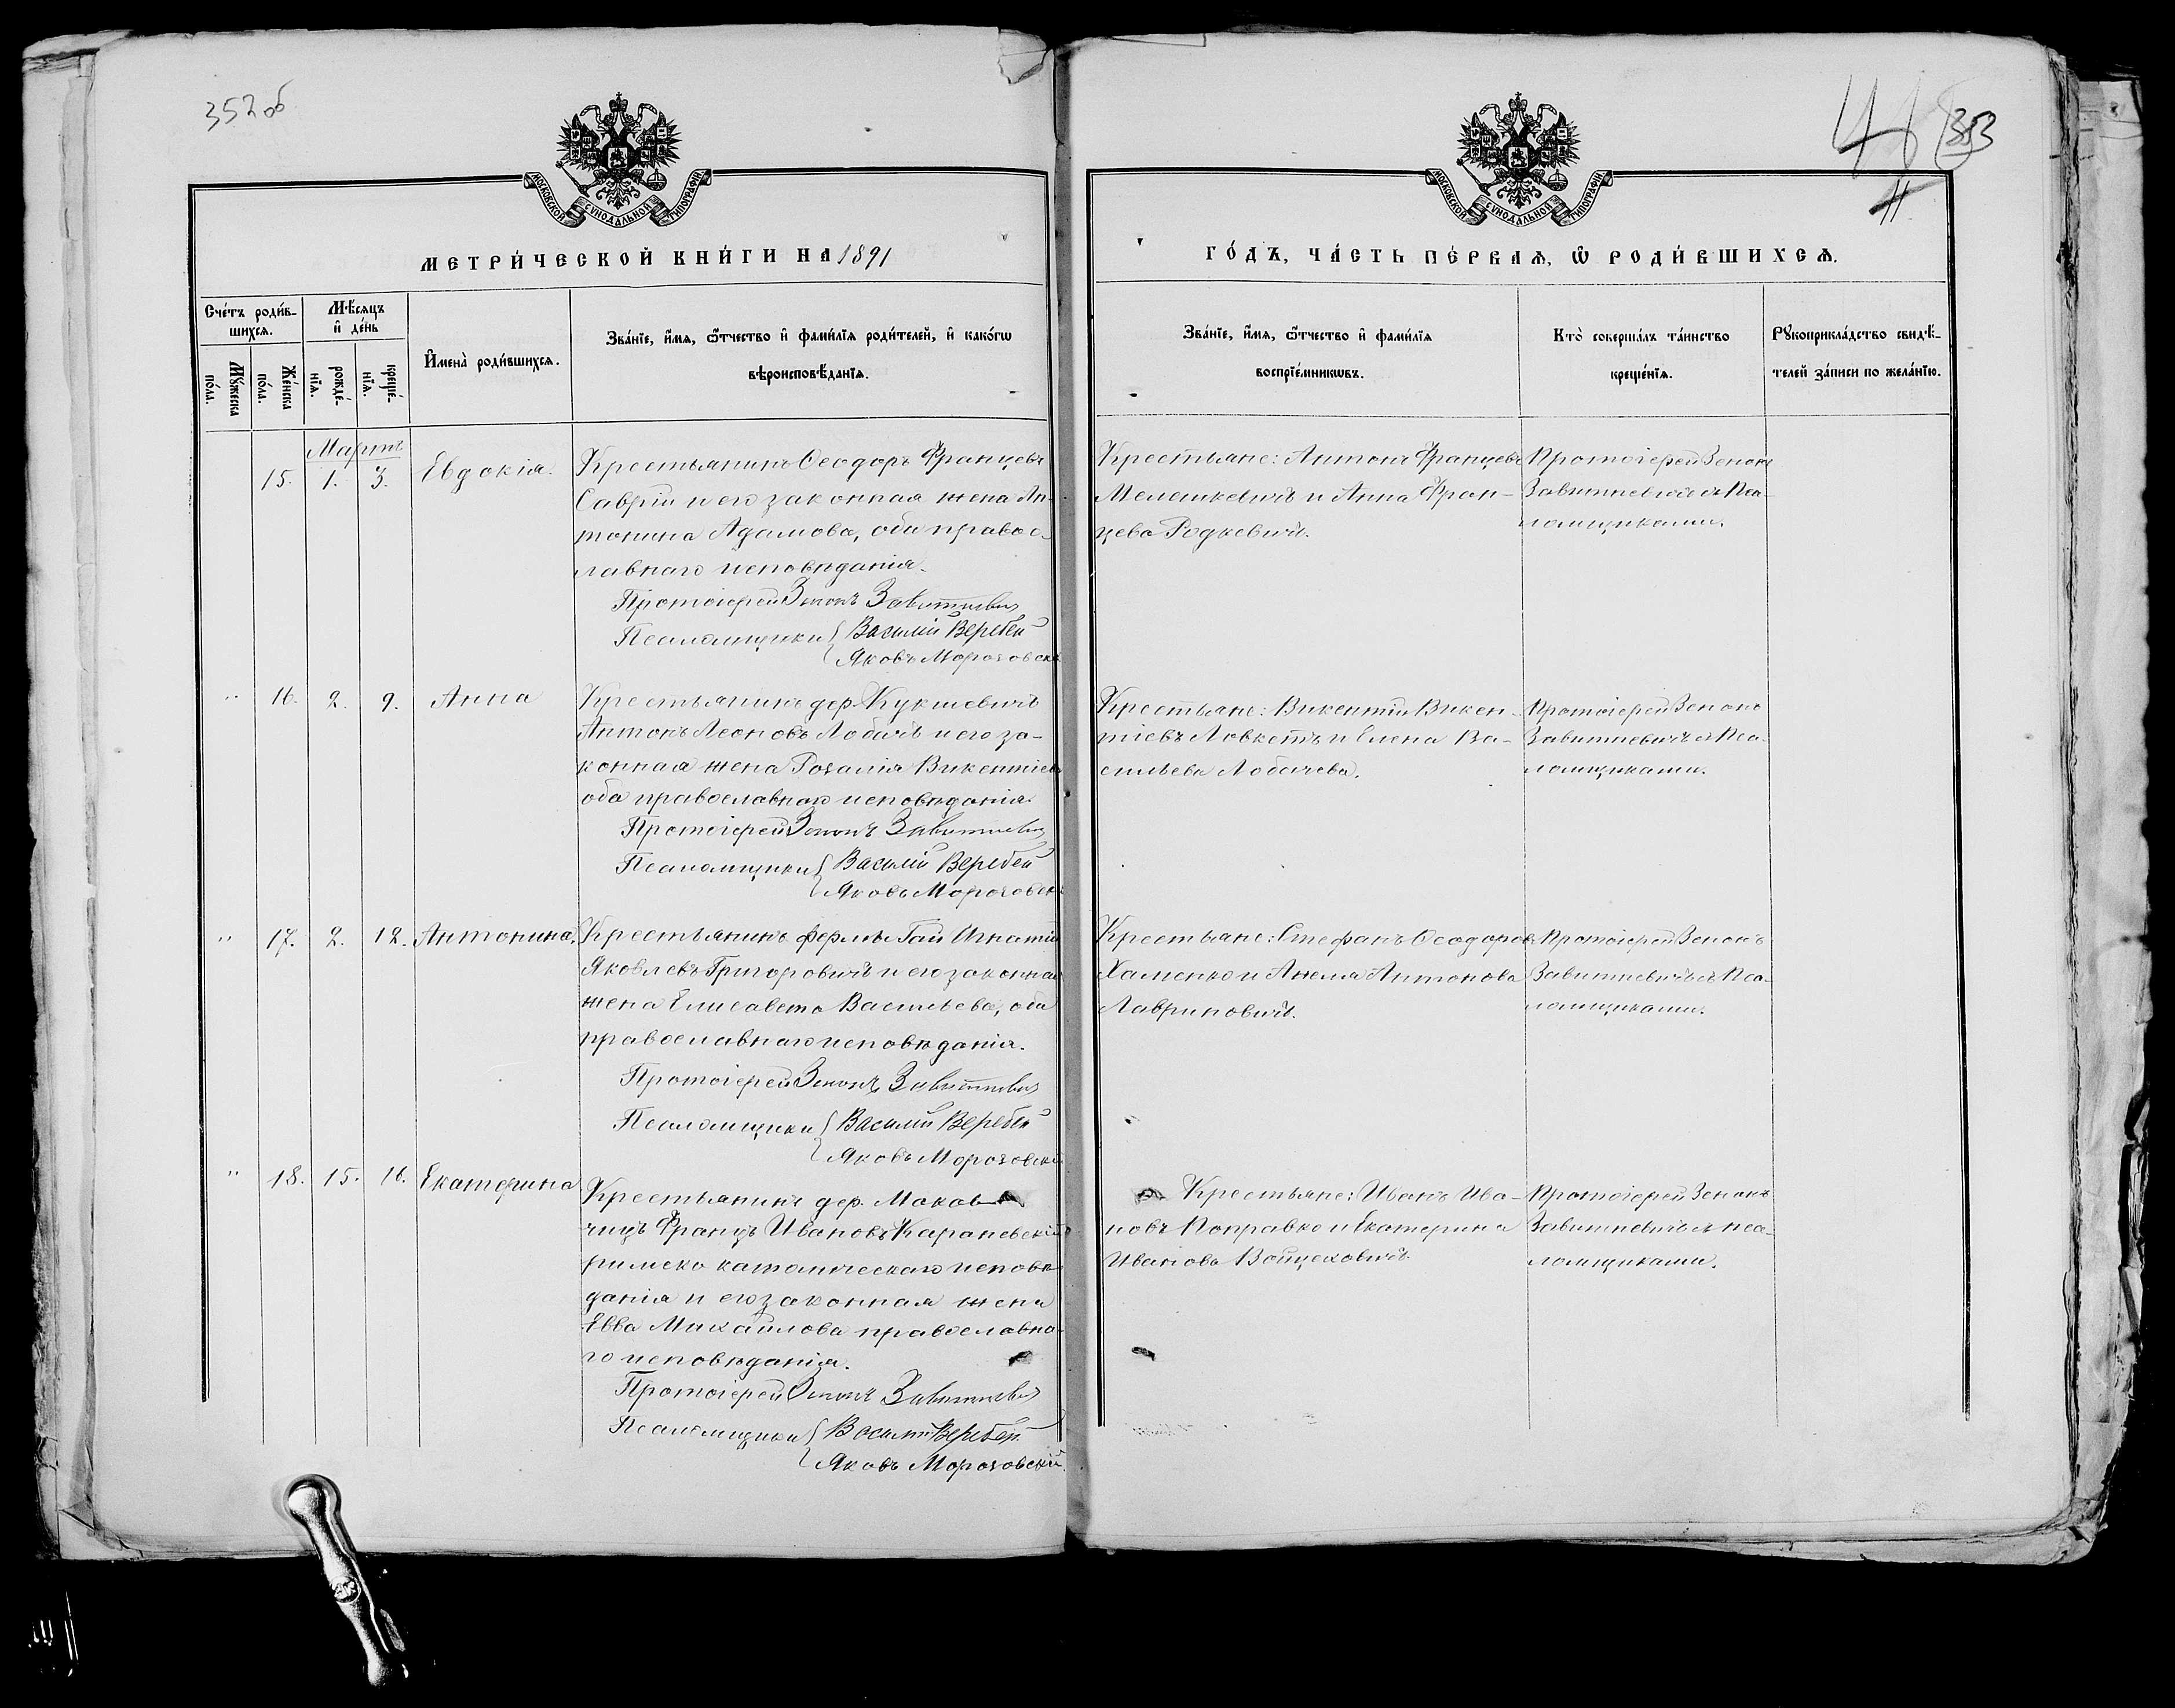 352 об
МОСКОВСКОЙ СѴНОДАЛЬНОЙ ТИПОГРАФІИ
МЕТРИ́ЧЕСКОЙ КНИ́ГИ НА 1891
Сче́тъ роди́в-
шихсѧ.
Мѣ́сѧцъ
и҆ де́нь
Мꙋ́жеска
по́ла.
Же́нска
по́ла.
рожде́-
нїѧ.
креще́-
нїѧ.
И҆мена̀ роди́вшихсѧ.
Зва́нїе, и҆́мѧ, ѻ҆́тчество и҆ фами́лїѧ роди́телей, и҆ како́гѡ
вѣроисповѣ́данїѧ.
Мартъ
15. 1. 3. Евдокія.
Крестьянинъ Ѳеодоръ Францевъ
Саврій и его законная жена Ан-
тонина Адамова, оба правос-
лавнаго исповѣданія.
Протоіерей Зенонъ Завитневич
Псаломщики { Василій Веребей
Яковъ Морозовскі
" 16. 2. 9. Анна
Крестьянинъ дер. Кукшевичъ
Антонъ Леоновъ Лобачъ и его за-
конная жена Розалія Викентіева
оба православнаго исповѣданія.
Протоіерей Зенонъ Завитневич
Псаломщики { Василій Веребей
Яковъ Морозовскі
" 17. 2. 12. Антонина.
Крестьянинъ фермы Гай Игнатій
Яковлевъ Григоровичъ и его законная
жена Елисавета Васильева, оба
православнаго исповѣданія.
Протоіерей Зенонъ Завитневич
Псаломщики { Василій Веребей
Яковъ Морозовскі
" 18. 15. 16. Екатерина
Крестьянинъ дер. Маков
чицъ Францъ Ивановъ Караневскій
римско католическаго исповѣ
данія и его законная жена
Евва Михайлова православна-
го исповѣданія.
Протоіерей Зенонъ Завитневич
Псаломщики { Василій Веребей
Яковъ Морозовскій.
353
МОСКОВСКОЙ СѴНОДАЛЬНОЙ ТИПОГРАФІИ
ГО́ДЪ, ЧА́СТЬ ПЕ́РВАѦ, Ѡ҆ РОДИ́ВШИХСѦ.
Зва́нїе, и҆́мѧ, ѻ҆́тчество и҆ фами́лїѧ
воспрїе́мникѡвъ.
Кто̀ соверша́лъ та́инство
креще́нїѧ.
Рꙋкоприкла́дство свидѣ́-
телей за́писи по жела́нїю.
Крестьяне: Антонъ Францевъ
Мелешкевичъ и Анна Фран-
цева Родкевичъ.
Протоіерей Зенонъ
Завитневичъ съ Пса-
ломщиками.
Крестьяне: Викентій Викен-
тіевъ Ловкетъ и Елена Ва-
сильева Лобачева.
Протоіерей Зенонъ
Завитневичъ съ Пса-
ломщиками.
Крестьяне: Стефанъ Ѳеодоровъ
Хаменко и Анеля Антонова
Лавриновичъ.
Протоіерей Зенонъ
Завитневичъ съ Пса-
ломщиками.
Крестьяне: Иванъ Ива-
новъ Поправко и Екатерина
Иванова Войцеховичъ
Протоіерей Зенонъ
Завитневичъ съ Пса-
ломщиками.